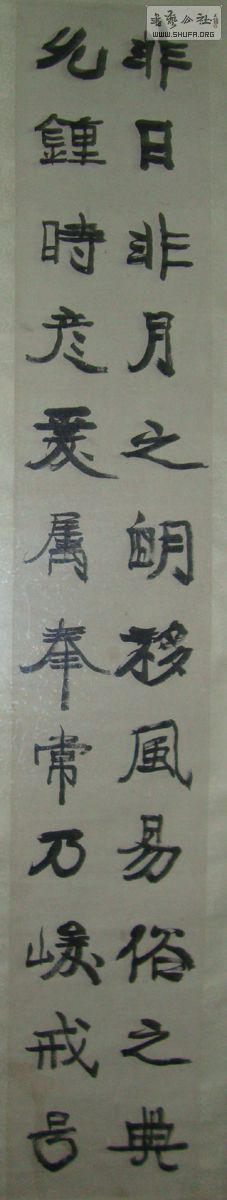 書藝公社
WWW.SHUFA.ORG
非日非月之朙移風易俗之典
允鍾時彦爰属奉常乃峻戒号